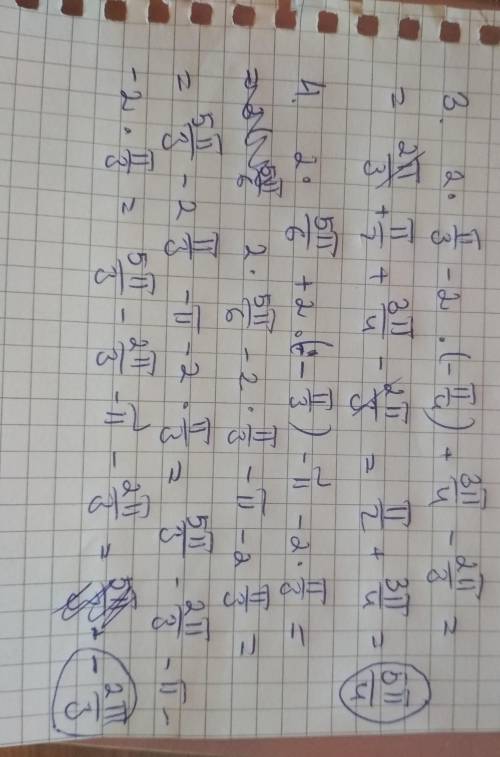 3. 2·π/3 - 2·(-π/4) + 3π/4 - 2π/3 =
= 2π/3 + π/2 + 3π/4 - 2π/3 = π/2 + 3π/4 = 5π/4
4. 2·5π/6 + 2·(-π/3) - π - 2·π/3 =
2·5π/6 - 2·π/3 - π - 2 π/3 =
= 5π/3 - 2 π/3 - π - 2·π/3 = 5π/3 - 2π/3 - π -
- 2·π/3 = 5π/3 - 2π/3 - π - 2π/3 = - 2π/3